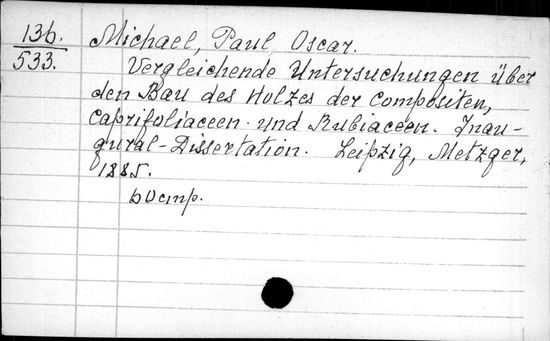 136.
533.
Michael, Paul Oscar.
Vergleichende Untersuchungen über
den Bau des Holzes der Compositen,
Caprifoliaceen und Rubiaceen. Inau-
gural-Dissertation. Leipzig, Metzger,
1885.
60 стр.